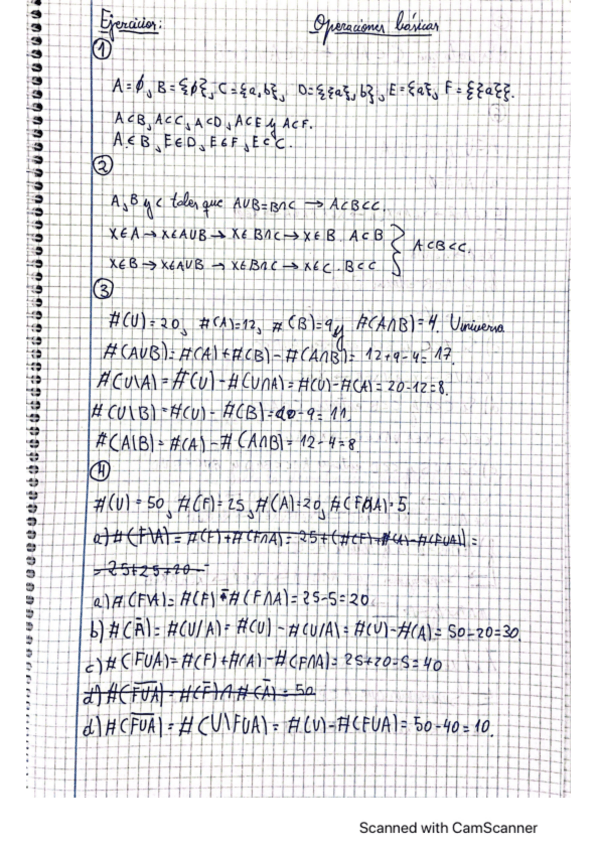 Ejercicios: Operaciones básicas
①
A=∅, B={∅}, C={a,b}, D={{a},b}, E={a}, F={{a}}.
A⊂B, A⊂C, A⊂D, A⊂E y A⊂F.
A∈B, E∈D, E∈F, E⊂C.
②
A, B y C tales que A∪B=B∩C → A⊂B⊂C.
X∈A → X∈A∪B → X∈B∩C → X∈B. A⊂B
A⊂B⊂C.
X∈B → X∈A∪B → X∈B∩C → X∈C. B⊂C
③
#(U)=20, #(A)=12, #(B)=9 y #(A∩B)=4. Universo
#(A∪B)=#(A)+#(B)-#(A∩B)= 12+9-4=17.
#(U\A)=#(U)-#(U∩A)=#(U)-#(A)=20-12=8.
#(U\B)=#(U)-#(B)=20-9=11.
#(A\B)=#(A)-#(A∩B)=12-4=8.
④
#(U)=50, #(F)=25, #(A)=20, #(F∩A)=5.
a) #(F\A)=#(F)+#(F∩A)=25+(#(F)+#(A)-#(F∪A))=
=25+25+20-
a) #(F\A)=#(F)-#(F∩A)=25-5=20.
b) #(Ā)=#(U/A)=#(U)-#(U/A)=#(U)-#(A)=50-20=30.
c) #(F∪A)=#(F)+#(A)-#(F∩A)=25+20-5=40
d) #(F̅∪̅A̅)=#(F̄)∩#(Ā)=50
d) #(F̅∪̅A̅)=#(U\F∪A)=#(U)-#(F∪A)=50-40=10.
Scanned with CamScanner